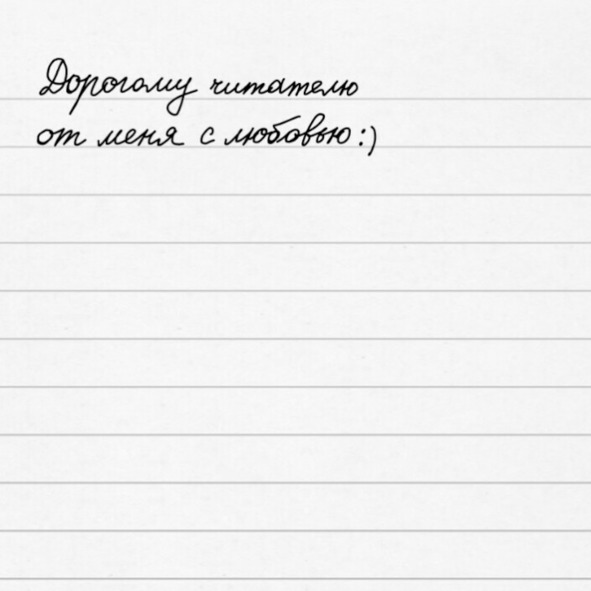 Дорогому читателю
от меня с любовью :)